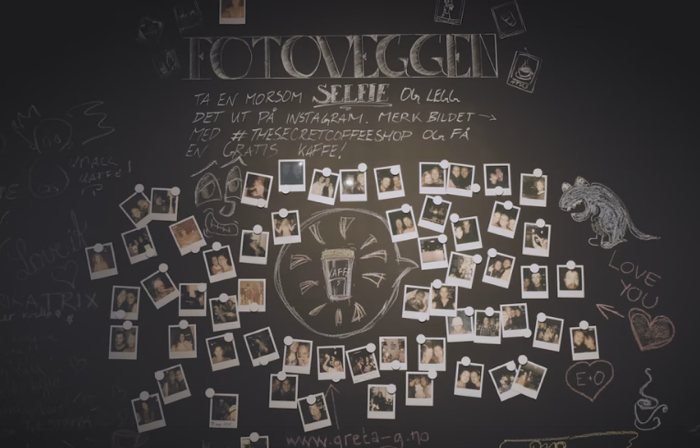 FOTOVEGGEN
TA EN MORSOM SELFIE OG LEGG
DET UT PÅ INSTAGRAM. MERK BILDET →
MED #THESECRETCOFFEESHOP OG FÅ
EN GRATIS KAFFE!
KAFFE
LOVE
YOU
E+O
www.greta-g.no